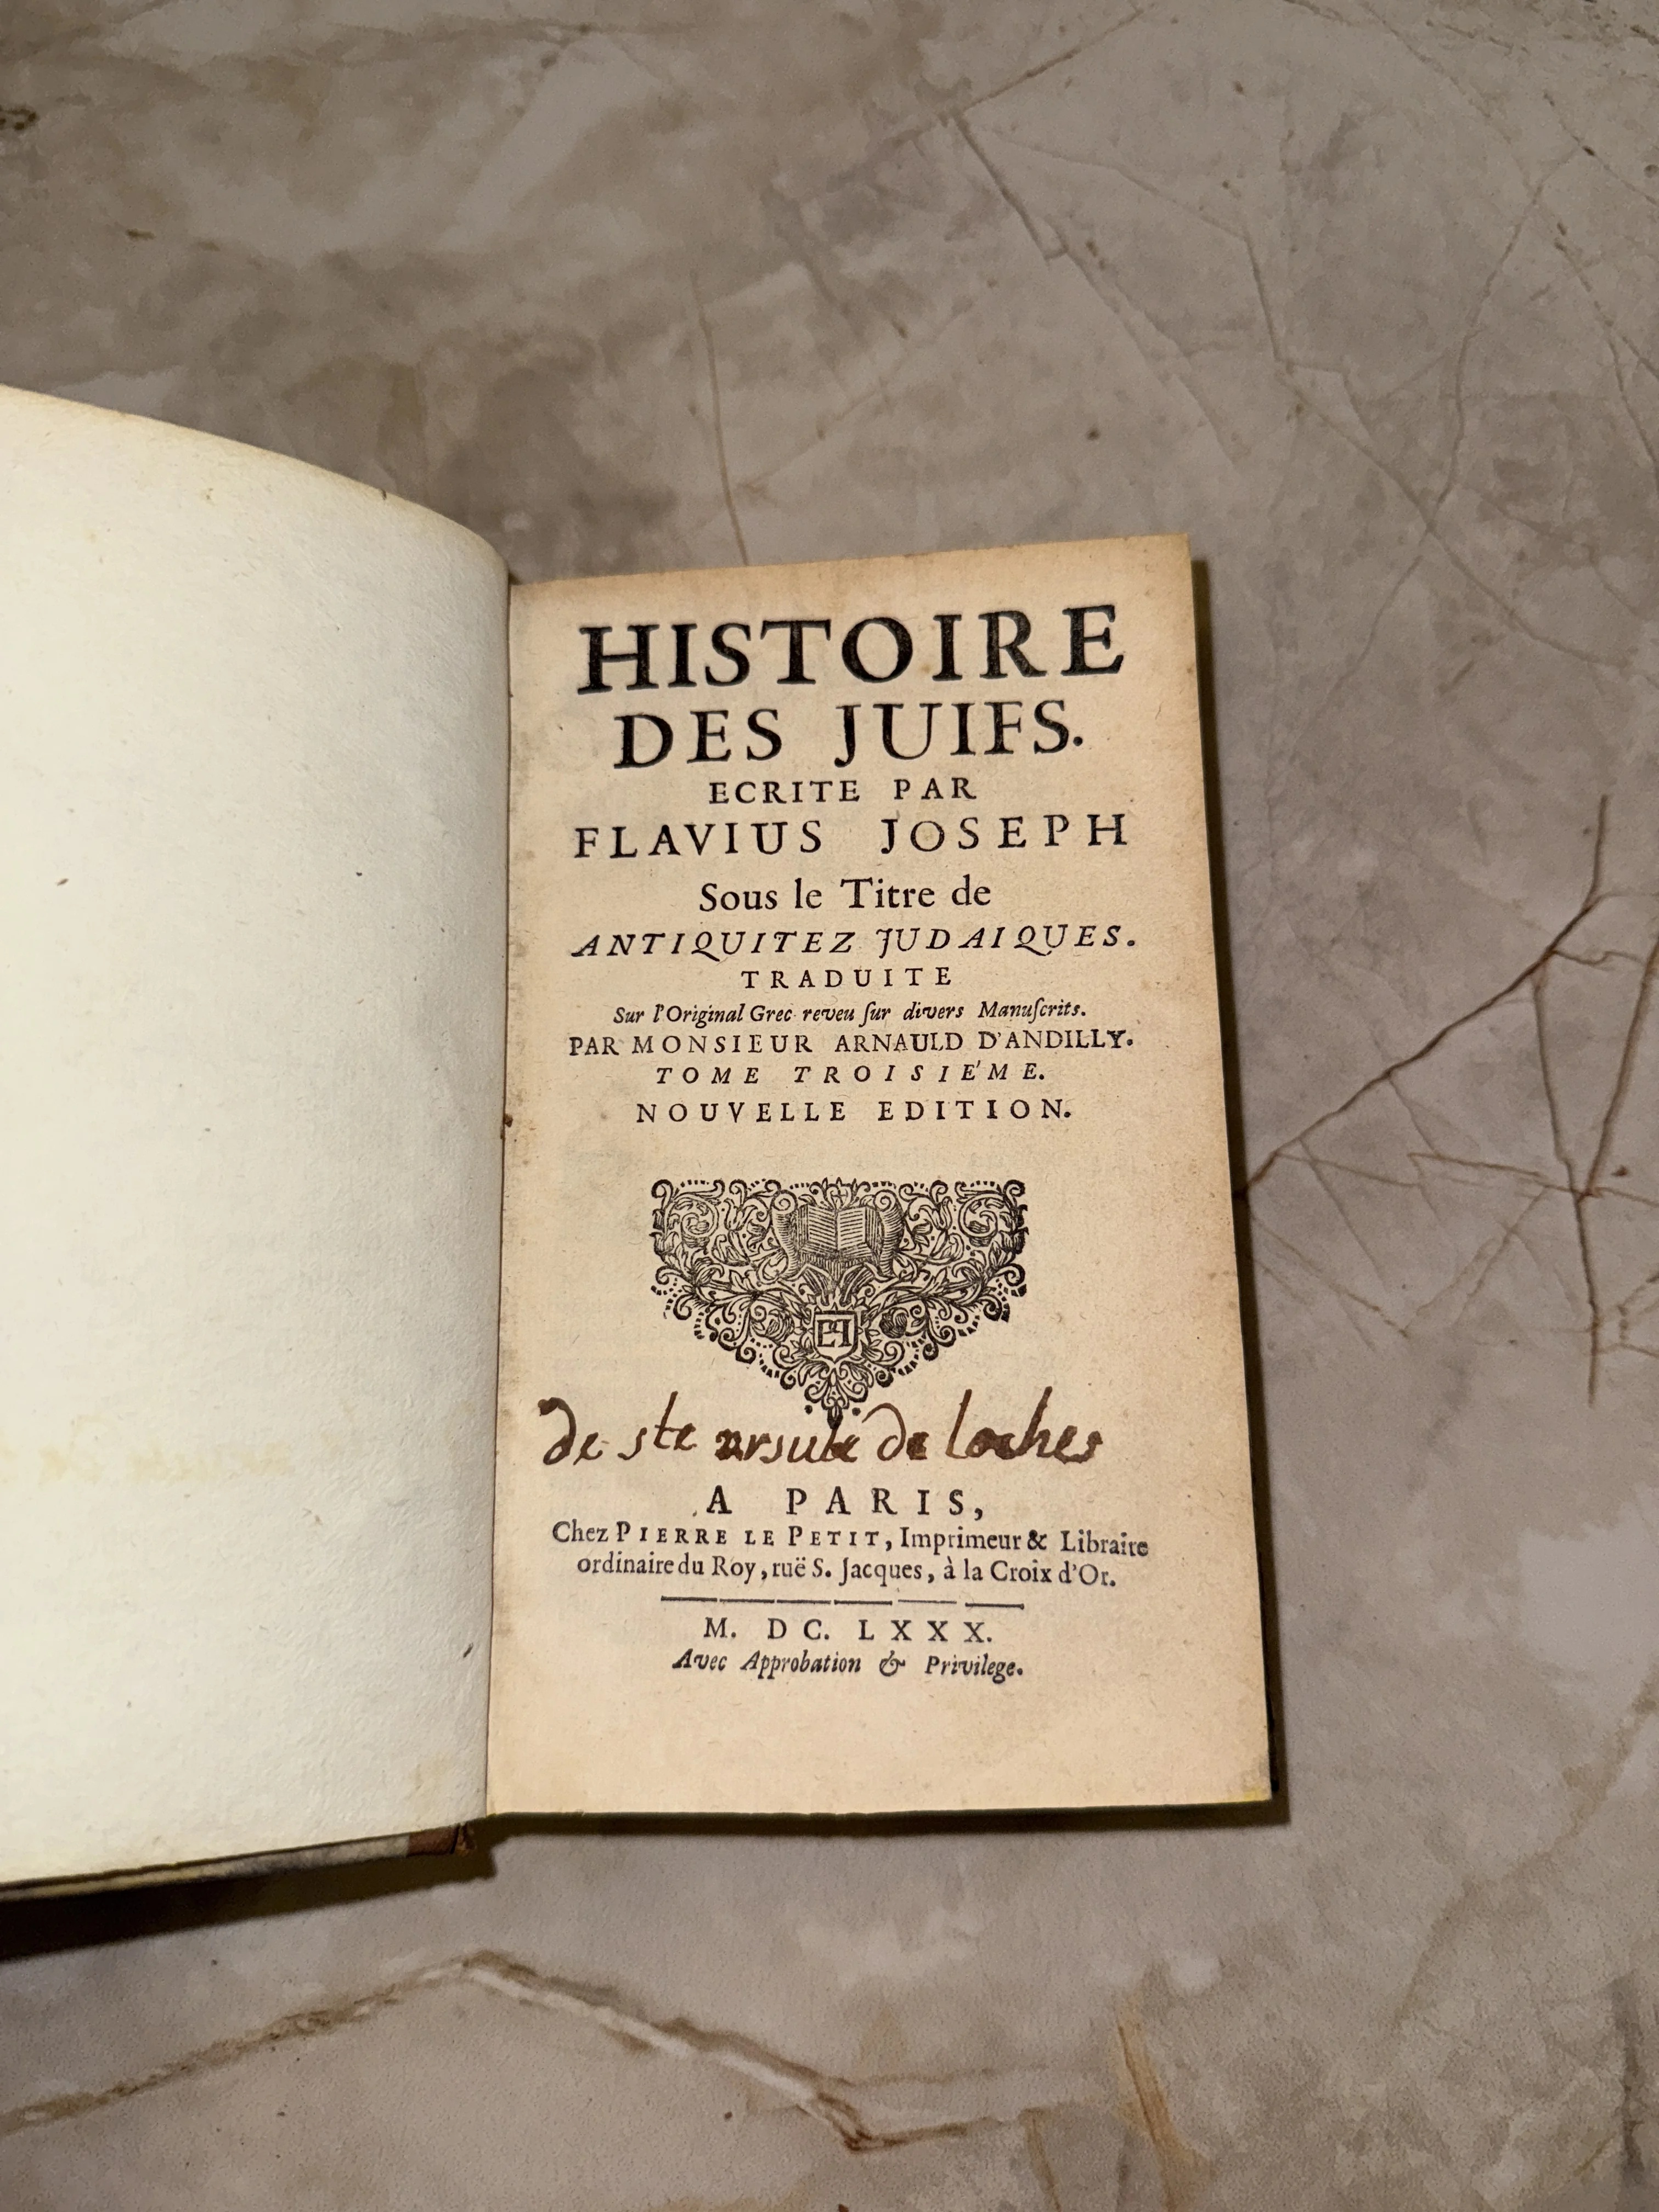 HISTOIRE
DES JUIFS.
ECRITE PAR
FLAVIUS JOSEPH
Sous le Titre de
ANTIQUITEZ JUDAIQUES.
TRADUITE
Sur l'Original Grec reveu ſur divers Manuſcrits.
PAR MONSIEUR ARNAULD D'ANDILLY.
TOME TROISIE'ME.
NOUVELLE EDITION.
de ste ursule de loches
A PARIS,
Chez PIERRE LE PETIT, Imprimeur & Libraire
ordinaire du Roy, ruë S. Jacques, à la Croix d'Or.
M. DC. LXXX.
Avec Approbation & Privilege.